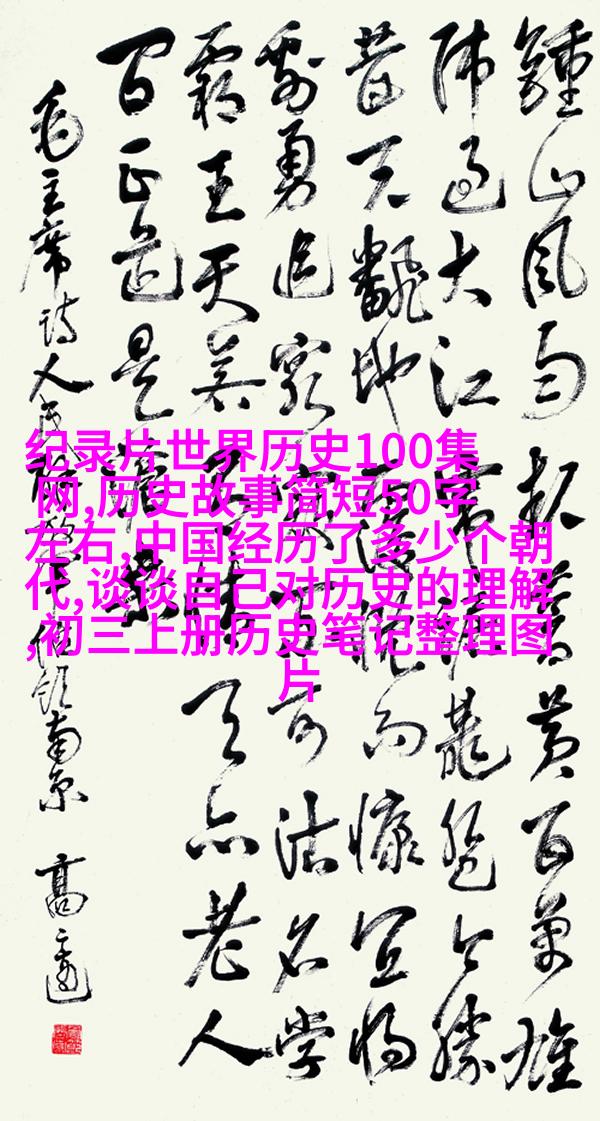 鍾山風雨起蒼黄百萬雄
師過大江虎踞龍盤今勝
昔天翻地覆慨而慷宜將
剩勇追窮寇不可沽名學
霸王天若有情天亦老人
間正道是滄桑
毛主席诗人民解放軍佔领南京 高
纪录片世界历史100集
网,历史故事简短50字
左右,中国经历了多少个朝
代,谈谈自己对历史的理解
,初三上册历史笔记整理图
片